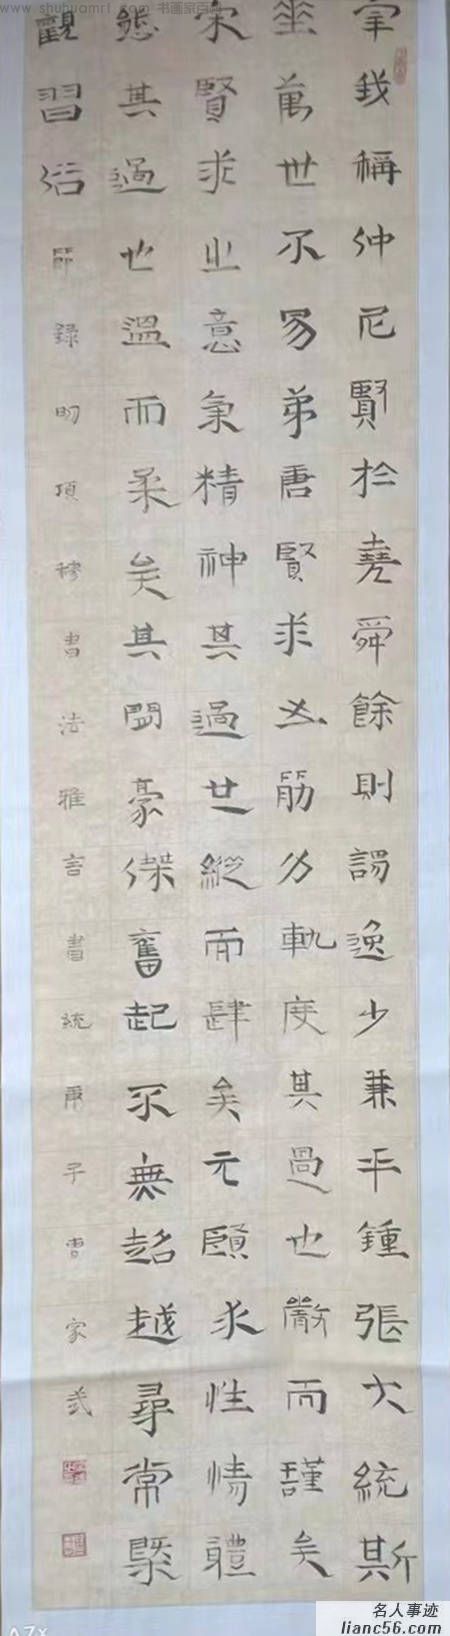 www.shuhuamrl.com 书画家百科
宰我稱仲尼賢於堯舜餘則謂逸少兼乎鍾張大統斯
垂萬世不易弟唐賢求之筋力軌度其過也嚴而謹矣
宋賢求之意氣精神其過也縱而肆矣元賢求性情體
態其過也溫而柔矣其間豪傑奮起不無超越尋常槩
觀習俗
節錄明項穆書法雅言書統庚子曹家武
名人事迹
lianc56.com